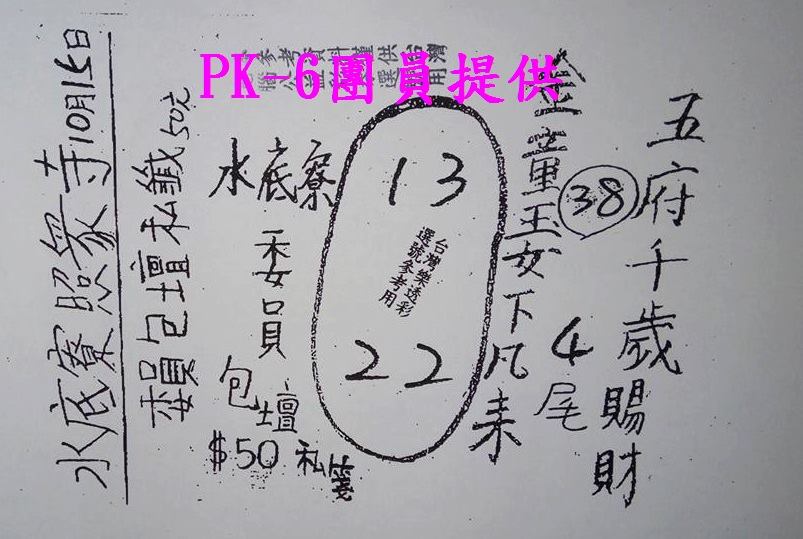 PK-6團員提供
五府千歲賜財
38
4尾
金童玉女下凡來
13
台灣樂透彩
選號參考用
22
水底寮
委員
包壇
$50 私箋
委員包壇私籤50元
水底寮照眾寺10月15日